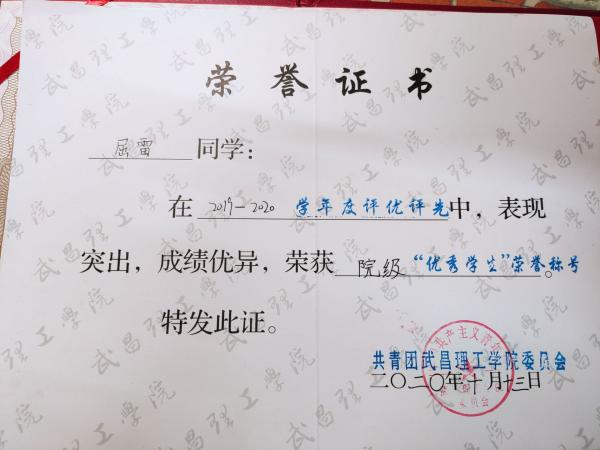 荣誉证书
屈雷 同学：
在 2019-2020 学年度评优评先中，表现
突出，成绩优异，荣获 院级“优秀学生”荣誉称号。
特发此证。
共青团武昌理工学院委员会
二〇二〇年十月十三日
武昌理工學院